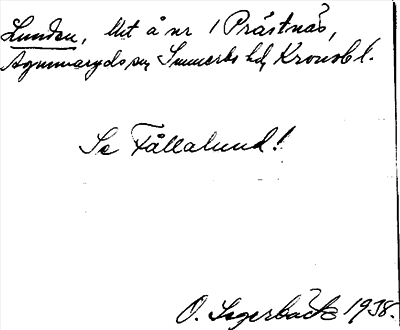 Lunden, Ut å nr 1 Prästnäs,
Agunnaryds sn, Sunnerbo hd, Kronob l.
Se Fållalund!
O. Sagerbäck 1938.